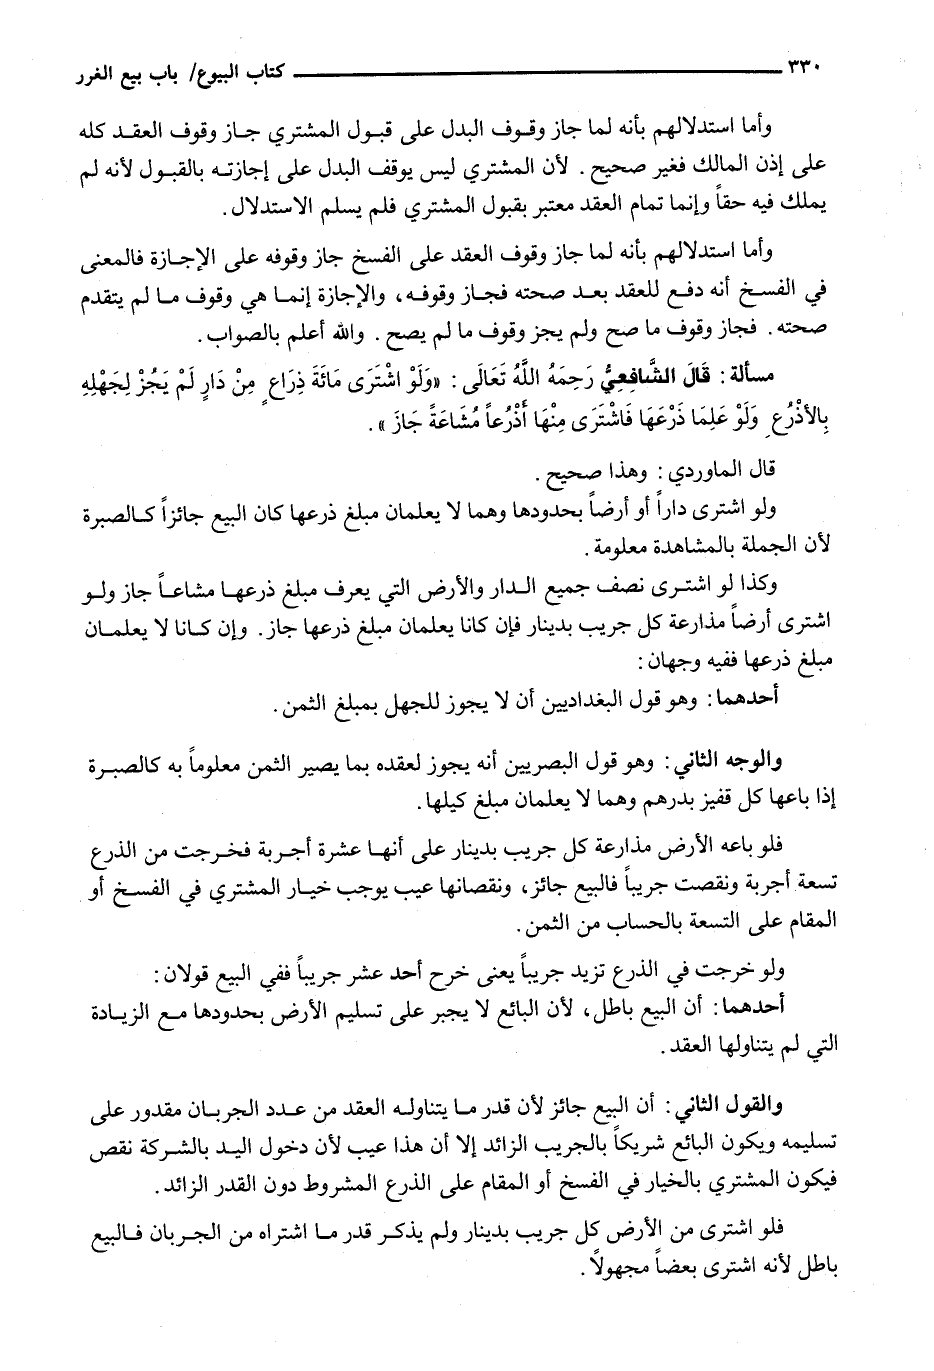 ٣٣٠ ــــــــــــــــــــــــــــــــــــــــــ كتاب البيوع/ باب بيع الغرر
وأما استدلالهم بأنه لما جاز وقوف البدل على قبول المشتري جاز وقوف العقد كله
على إذن المالك فغير صحيح. لأن المشتري ليس يوقف البدل على إجازته بالقبول لأنه لم
يملك فيه حقاً وإنما تمام العقد معتبر بقبول المشتري فلم يسلم الاستدلال.
وأما استدلالهم بأنه لما جاز وقوف العقد على الفسخ جاز وقوفه على الإجازة فالمعنى
في الفسخ أنه دفع للعقد بعد صحته فجاز وقوفه، والإجازة إنما هي وقوف ما لم يتقدم
صحته. فجاز وقوف ما صح ولم يجز وقوف ما لم يصح. والله أعلم بالصواب.
مسألة: قَالَ الشَّافِعِيُّ رَحِمَهُ اللَّهُ تَعَالَى: «وَلَوْ اشْتَرَى مَائَةَ ذِرَاعٍ مِنْ دَارٍ لَمْ يَجُزْ لِجَهْلِهِ
بِالأَذْرُعِ وَلَوْ عَلِمَا ذَرْعَهَا فَاشْتَرَى مِنْهَا أَذْرُعاً مُشَاعَةً جَازَ».
قال الماوردي: وهذا صحيح.
ولو اشترى داراً أو أرضاً بحدودها وهما لا يعلمان مبلغ ذرعها كان البيع جائزاً كالصبرة
لأن الجملة بالمشاهدة معلومة.
وكذا لو اشترى نصف جميع الدار والأرض التي يعرف مبلغ ذرعها مشاعاً جاز ولو
اشترى أرضاً مذارعة كل جريب بدينار فإن كانا يعلمان مبلغ ذرعها جاز. وإن كانا لا يعلمان
مبلغ ذرعها ففيه وجهان:
أحدهما: وهو قول البغداديين أن لا يجوز للجهل بمبلغ الثمن.
والوجه الثاني: وهو قول البصريين أنه يجوز لعقده بما يصير الثمن معلوماً به كالصبرة
إذا باعها كل قفيز بدرهم وهما لا يعلمان مبلغ كيلها.
فلو باعه الأرض مذارعة كل جريب بدينار على أنها عشرة أجربة فخرجت من الذرع
تسعة أجربة ونقصت جريباً فالبيع جائز، ونقصانها عيب يوجب خيار المشتري في الفسخ أو
المقام على التسعة بالحساب من الثمن.
ولو خرجت في الذرع تزيد جريباً يعنى خرج أحد عشر جريباً ففي البيع قولان:
أحدهما: أن البيع باطل، لأن البائع لا يجبر على تسليم الأرض بحدودها مع الزيادة
التي لم يتناولها العقد.
والقول الثاني: أن البيع جائز لأن قدر ما يتناوله العقد من عدد الجربان مقدور على
تسليمه ويكون البائع شريكاً بالجريب الزائد إلا أن هذا عيب لأن دخول اليد بالشركة نقص
فيكون المشتري بالخيار في الفسخ أو المقام على الذرع المشروط دون القدر الزائد.
فلو اشترى من الأرض كل جريب بدينار ولم يذكر قدر ما اشتراه من الجربان فالبيع
باطل لأنه اشترى بعضاً مجهولاً.